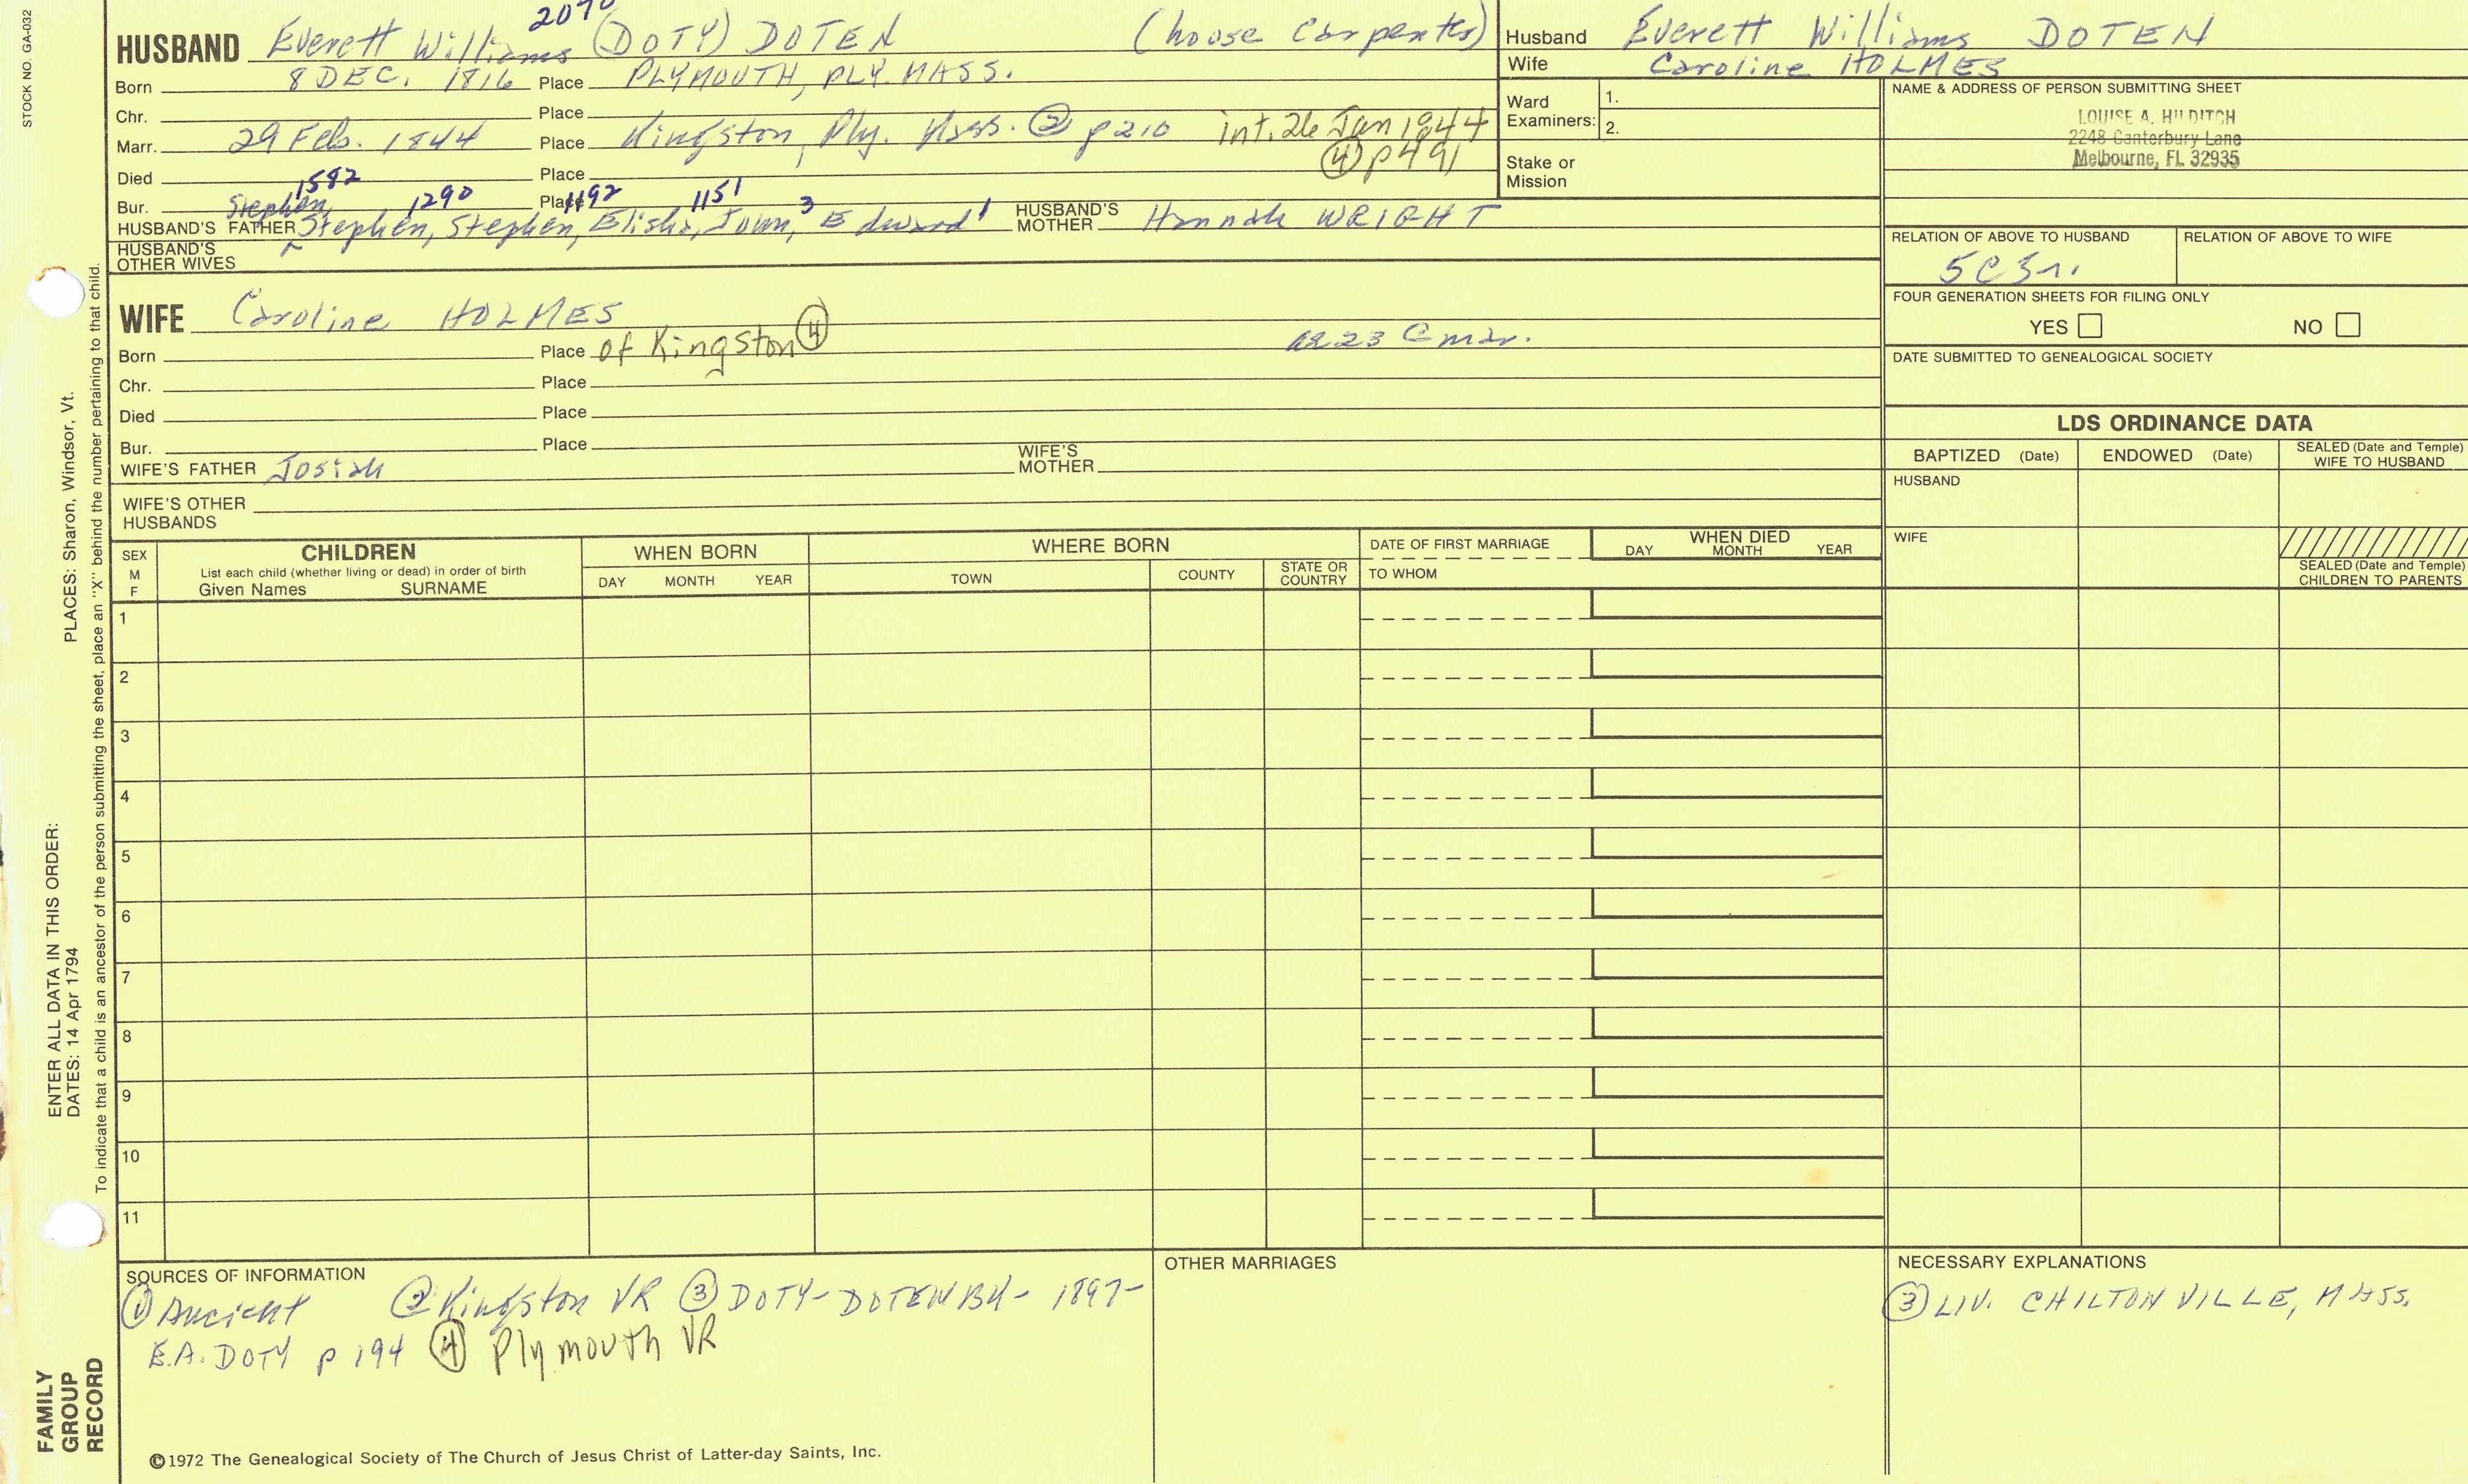 STOCK NO. GA-032
HUSBAND Everett Williams (DOTY) DOTEN (house Carpenter)
Born 8 DEC. 1816 Place PLYMOUTH, PLY. MASS.
Chr. Place
Marr. 29 Feb. 1844 Place Kingston, Ply. Mass. ② p210 int. 26 Jan 1844
④ p491
Died Place
1582 1290 1192 1151 3
Bur. Stephen, Place
HUSBAND'S FATHER Stephen, Stephen, Elisha, John, Edward 1 HUSBAND'S MOTHER Hannah WRIGHT
HUSBAND'S OTHER WIVES
WIFE Caroline HOLMES
Born Place of Kingston ④ ae 23 @ mar.
Chr. Place
Died Place
Bur. Place
WIFE'S FATHER Josiah WIFE'S MOTHER
WIFE'S OTHER HUSBANDS
Husband Everett Williams DOTEN
Wife Caroline HOLMES
Ward Examiners: 1.
2.
Stake or Mission
NAME & ADDRESS OF PERSON SUBMITTING SHEET
LOUISE A. HILDITCH
2248 Canterbury Lane
Melbourne, FL 32935
RELATION OF ABOVE TO HUSBAND RELATION OF ABOVE TO WIFE
5C3r.
FOUR GENERATION SHEETS FOR FILING ONLY
YES NO
DATE SUBMITTED TO GENEALOGICAL SOCIETY
LDS ORDINANCE DATA
BAPTIZED (Date) ENDOWED (Date) SEALED (Date and Temple) WIFE TO HUSBAND
HUSBAND
WIFE
SEALED (Date and Temple) CHILDREN TO PARENTS
SEX M F
CHILDREN
List each child (whether living or dead) in order of birth
Given Names SURNAME
WHEN BORN
DAY MONTH YEAR
WHERE BORN
TOWN COUNTY STATE OR COUNTRY
DATE OF FIRST MARRIAGE
TO WHOM
WHEN DIED
DAY MONTH YEAR
1
2
3
4
5
6
7
8
9
10
11
SOURCES OF INFORMATION
① Ancient ② Kingston VR ③ DOTY-DOTEN BK- 1897-
E.A. DOTY p 194 ④ Plymouth VR
OTHER MARRIAGES
NECESSARY EXPLANATIONS
③ LIV. CHILTONVILLE, MASS.
©1972 The Genealogical Society of The Church of Jesus Christ of Latter-day Saints, Inc.
ENTER ALL DATA IN THIS ORDER:
DATES: 14 Apr 1794
PLACES: Sharon, Windsor, Vt.
To indicate that a child is an ancestor of the person submitting the sheet, place an "X" behind the number pertaining to that child.
FAMILY
GROUP
RECORD